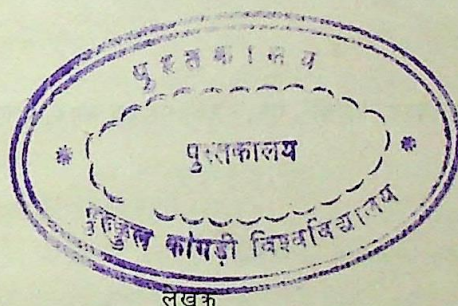 पुस्तकालय
पुस्तकालय
गुरुकुल कांगड़ी विश्वविद्यालय
लेखक